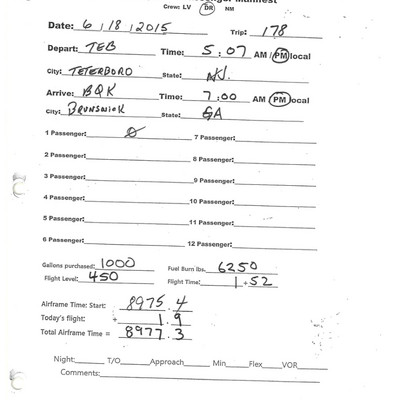 Passenger Manifest
Crew: LV DR NM
Date: 6 / 18 / 2015 Trip: 178
Depart: TEB Time: 5:07 AM / PM local
City: TETERBORO State: NJ.
Arrive: BQK Time: 7:00 AM PM local
City: BRUNSWICK State: GA
1 Passenger: 0 7 Passenger:
2 Passenger: 8 Passenger:
3 Passenger: 9 Passenger:
4 Passenger: 10 Passenger:
5 Passenger: 11 Passenger:
6 Passenger: 12 Passenger:
Gallons purchased: 1000 Fuel Burn lbs. 6250
Flight Level: 450 Flight Time: 1 + 52
Airframe Time: Start: 8975.4
Today's flight: + 1.9
Total Airframe Time = 8977.3
Night: T/O Approach Min Flex VOR
Comments: